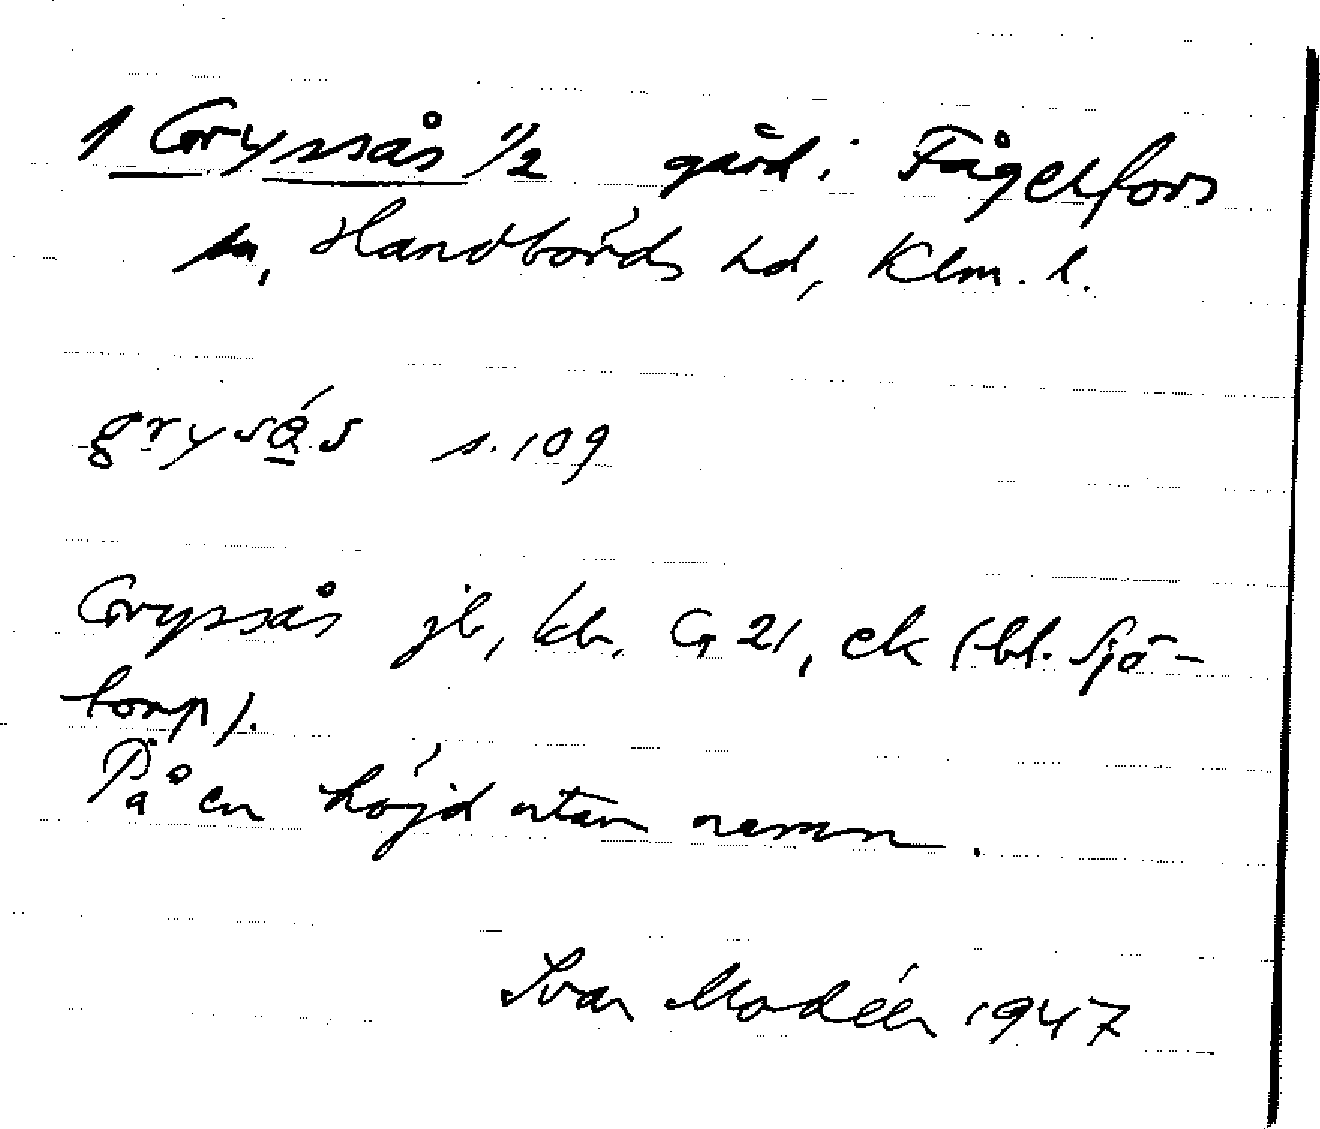 1 Gryssås 1/2 gård i Fågelfors
sn, Handbörds hd, Klm. l.
grysås s. 109
Gryssås jb, kb, G 21, ek (bl. Sjö-
torp).
På en höjd utan namn.
Ivar Modéer 1947